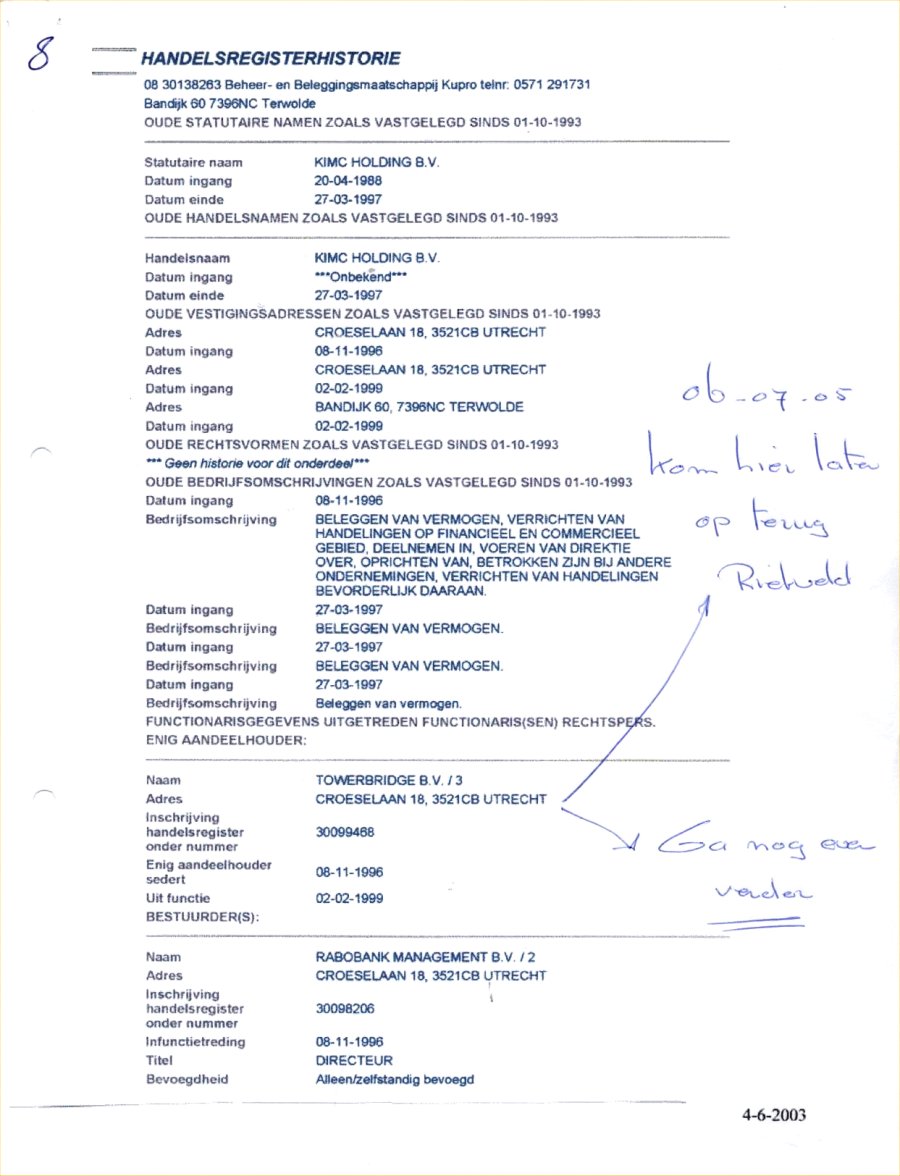 8
HANDELSREGISTERHISTORIE
08 30138263 Beheer- en Beleggingsmaatschappij Kupro telnr: 0571 291731
Bandijk 60 7396NC Terwolde
OUDE STATUTAIRE NAMEN ZOALS VASTGELEGD SINDS 01-10-1993
Statutaire naam KIMC HOLDING B.V.
Datum ingang 20-04-1988
Datum einde 27-03-1997
OUDE HANDELSNAMEN ZOALS VASTGELEGD SINDS 01-10-1993
Handelsnaam KIMC HOLDING B.V.
Datum ingang ***Onbekend***
Datum einde 27-03-1997
OUDE VESTIGINGSADRESSEN ZOALS VASTGELEGD SINDS 01-10-1993
Adres CROESELAAN 18, 3521CB UTRECHT
Datum ingang 08-11-1996
Adres CROESELAAN 18, 3521CB UTRECHT
Datum ingang 02-02-1999
Adres BANDIJK 60, 7396NC TERWOLDE
Datum ingang 02-02-1999
OUDE RECHTSVORMEN ZOALS VASTGELEGD SINDS 01-10-1993
*** Geen historie voor dit onderdeel***
OUDE BEDRIJFSOMSCHRIJVINGEN ZOALS VASTGELEGD SINDS 01-10-1993
Datum ingang 08-11-1996
Bedrijfsomschrijving BELEGGEN VAN VERMOGEN, VERRICHTEN VAN
HANDELINGEN OP FINANCIEEL EN COMMERCIEEL
GEBIED, DEELNEMEN IN, VOEREN VAN DIREKTIE
OVER, OPRICHTEN VAN, BETROKKEN ZIJN BIJ ANDERE
ONDERNEMINGEN, VERRICHTEN VAN HANDELINGEN
BEVORDERLIJK DAARAAN.
Datum ingang 27-03-1997
Bedrijfsomschrijving BELEGGEN VAN VERMOGEN.
Datum ingang 27-03-1997
Bedrijfsomschrijving BELEGGEN VAN VERMOGEN.
Datum ingang 27-03-1997
Bedrijfsomschrijving Beleggen van vermogen.
FUNCTIONARISGEGEVENS UITGETREDEN FUNCTIONARIS(SEN) RECHTSPERS.
ENIG AANDEELHOUDER:
06-07-05
kom hier later
op terug
Rietveld
Naam TOWERBRIDGE B.V. / 3
Adres CROESELAAN 18, 3521CB UTRECHT
Inschrijving
handelsregister 30099468
onder nummer
Enig aandeelhouder
sedert 08-11-1996
Uit functie 02-02-1999
BESTUURDER(S):
Ga nog even
verder
Naam RABOBANK MANAGEMENT B.V. / 2
Adres CROESELAAN 18, 3521CB UTRECHT
Inschrijving
handelsregister 30098206
onder nummer
Infunctietreding 08-11-1996
Titel DIRECTEUR
Bevoegdheid Alleen/zelfstandig bevoegd
4-6-2003